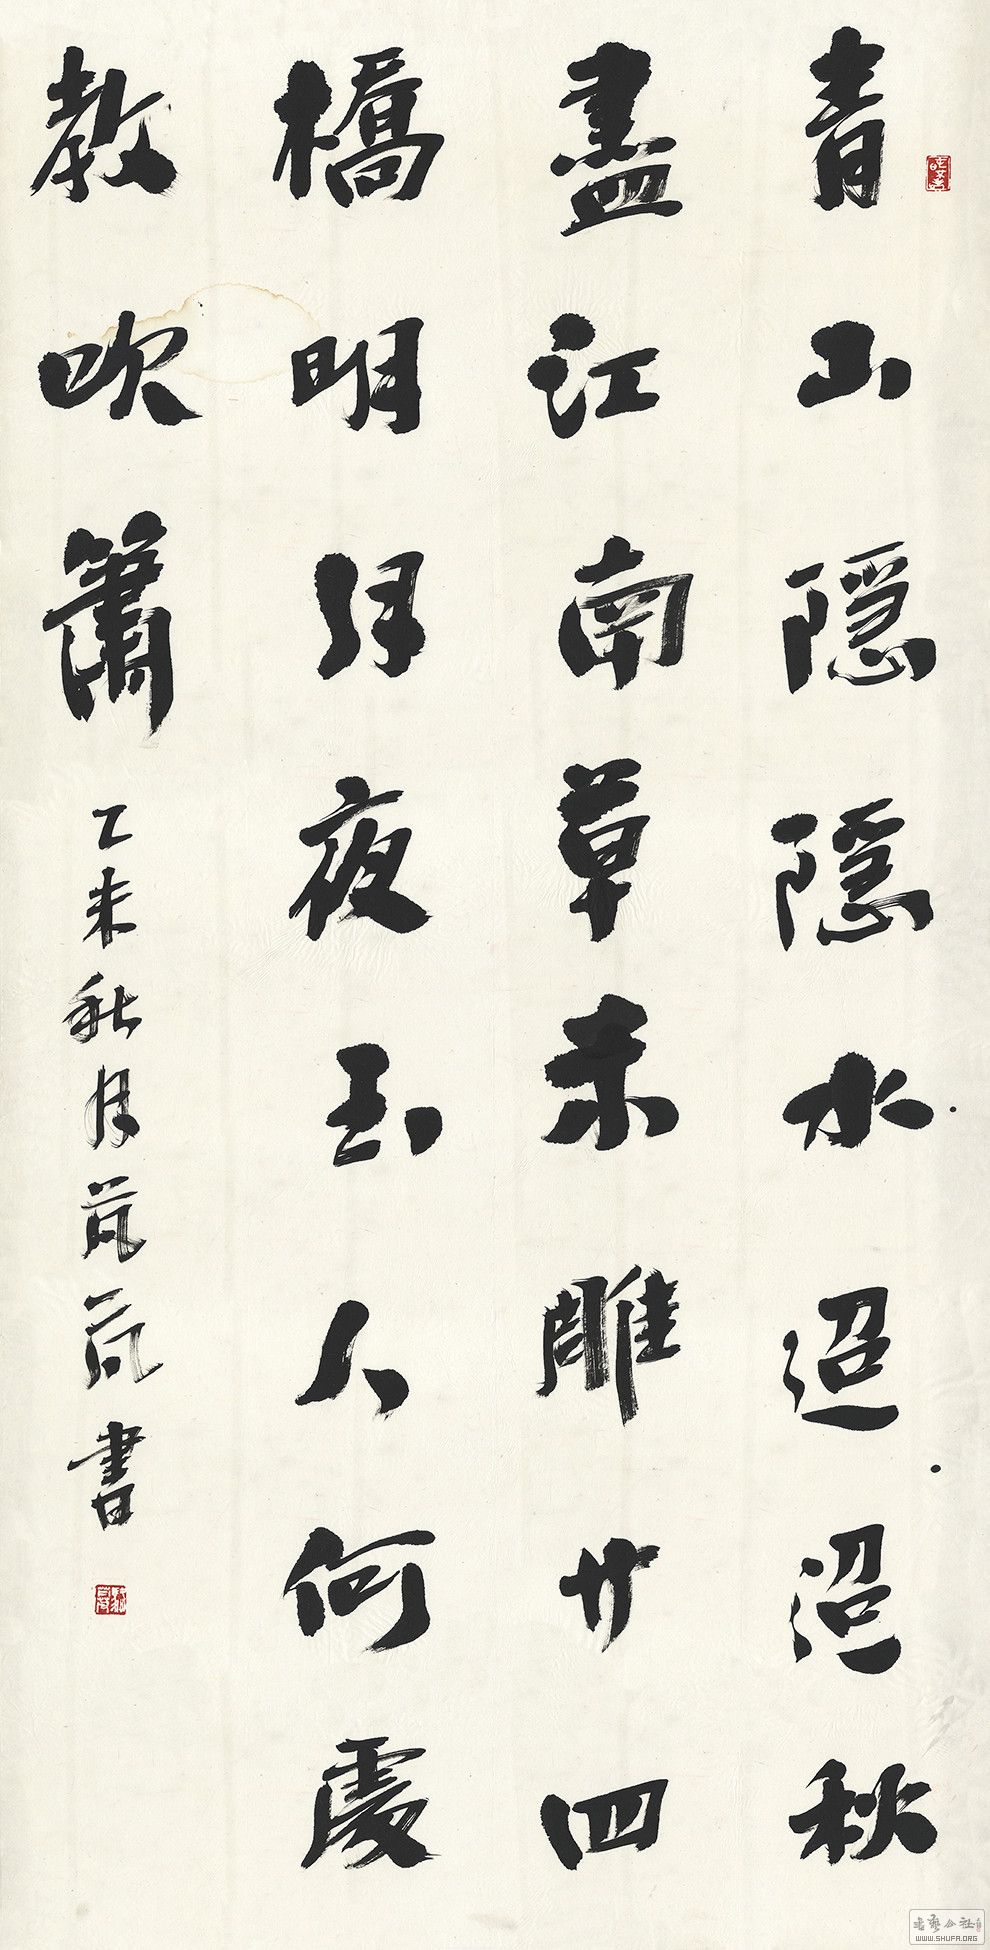 青山隱隱水迢迢秋
盡江南草未雕廿四
橋明月夜玉人何處
教吹簫
乙未秋月芃芃書
書藝公社
WWW.SHUFA.ORG